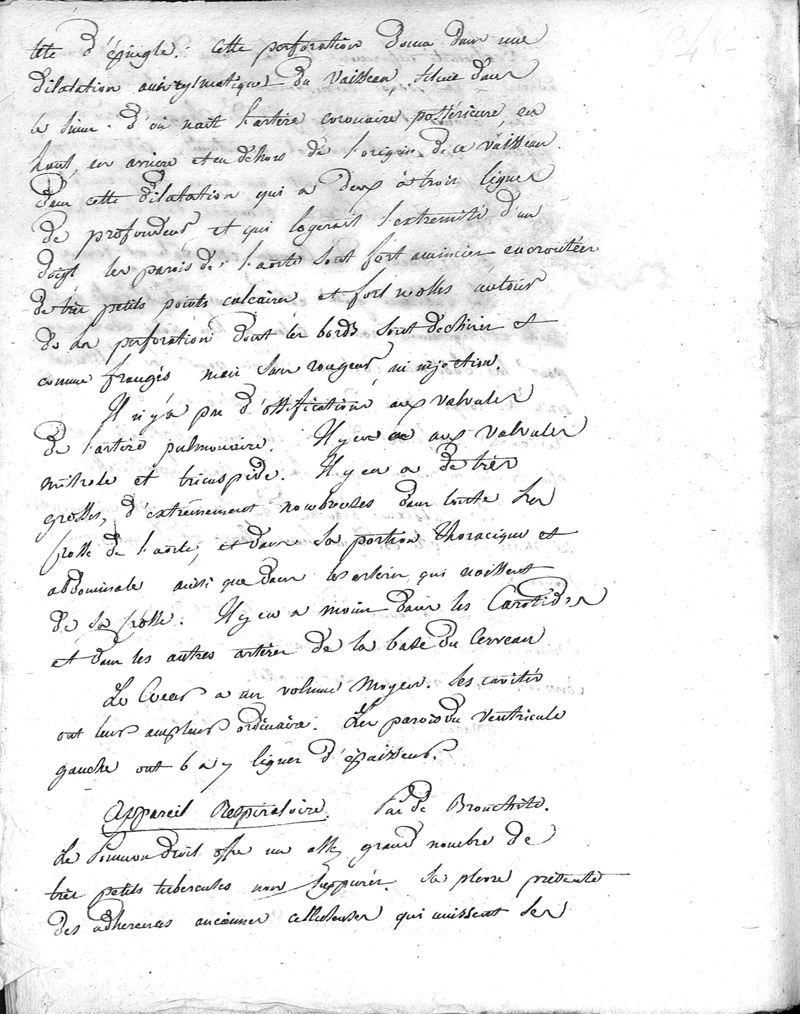 tête d'épingle. Cette perforation donne dans une
dilatation anévrysmatique du vaisseau située dans
le sinus d'où nait l'artère coronaire postérieure, en
haut, en arrière et en déhors de l'origine de ce vaisseau.
Dans cette dilatation qui a deux à trois lignes
de profondeur et qui logerait l'extremité d'un
doigt les parois de l'aorte sont fort amincies encroutées
de très petits points calcaires et fort molles autour
de la perforation dont les bords sont déchirés et
comme frangés mais sans rougeur ni injection.
Il n'y a pas d'ossifications aux valvules
de l'artère pulmonaire. Il y en a aux valvules
mitrale et tricuspide. Il y en a de très
grosses, d'extrêmement nombreuses dans toute la
crosse de l'aorte, et dans sa portion thoracique et
abdominale ainsi que dans les artères qui naissent
de sa crosse. Il y en a moins dans les Carotides
et dans les autres artères de la base du Cerveau
Le Coeur a un volume moyen. Ses cavités
ont leur ampleur ordinaire. Les parois du ventricule
gauche ont 6 a 7 lignes d'épaisseur.
Appareil Respiratoire. Pas de Bronchite.
Le Poumon droit offre un assez grand nombre de
très petits tubercules non suppurés. Sa plevre présente
des adherences anciennes celluleuses qui unissent les